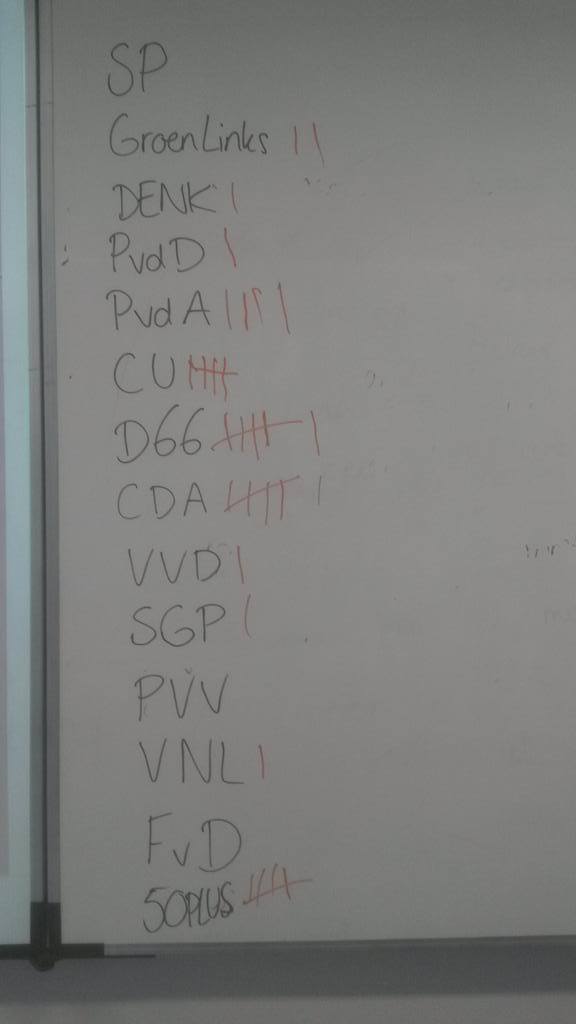 SP
GroenLinks ||
DENK |
PvdD |
PvdA ||||
CU 卌
D66 卌 |
CDA 卌 |
VVD |
SGP |
PVV
VNL |
FvD
50PLUS